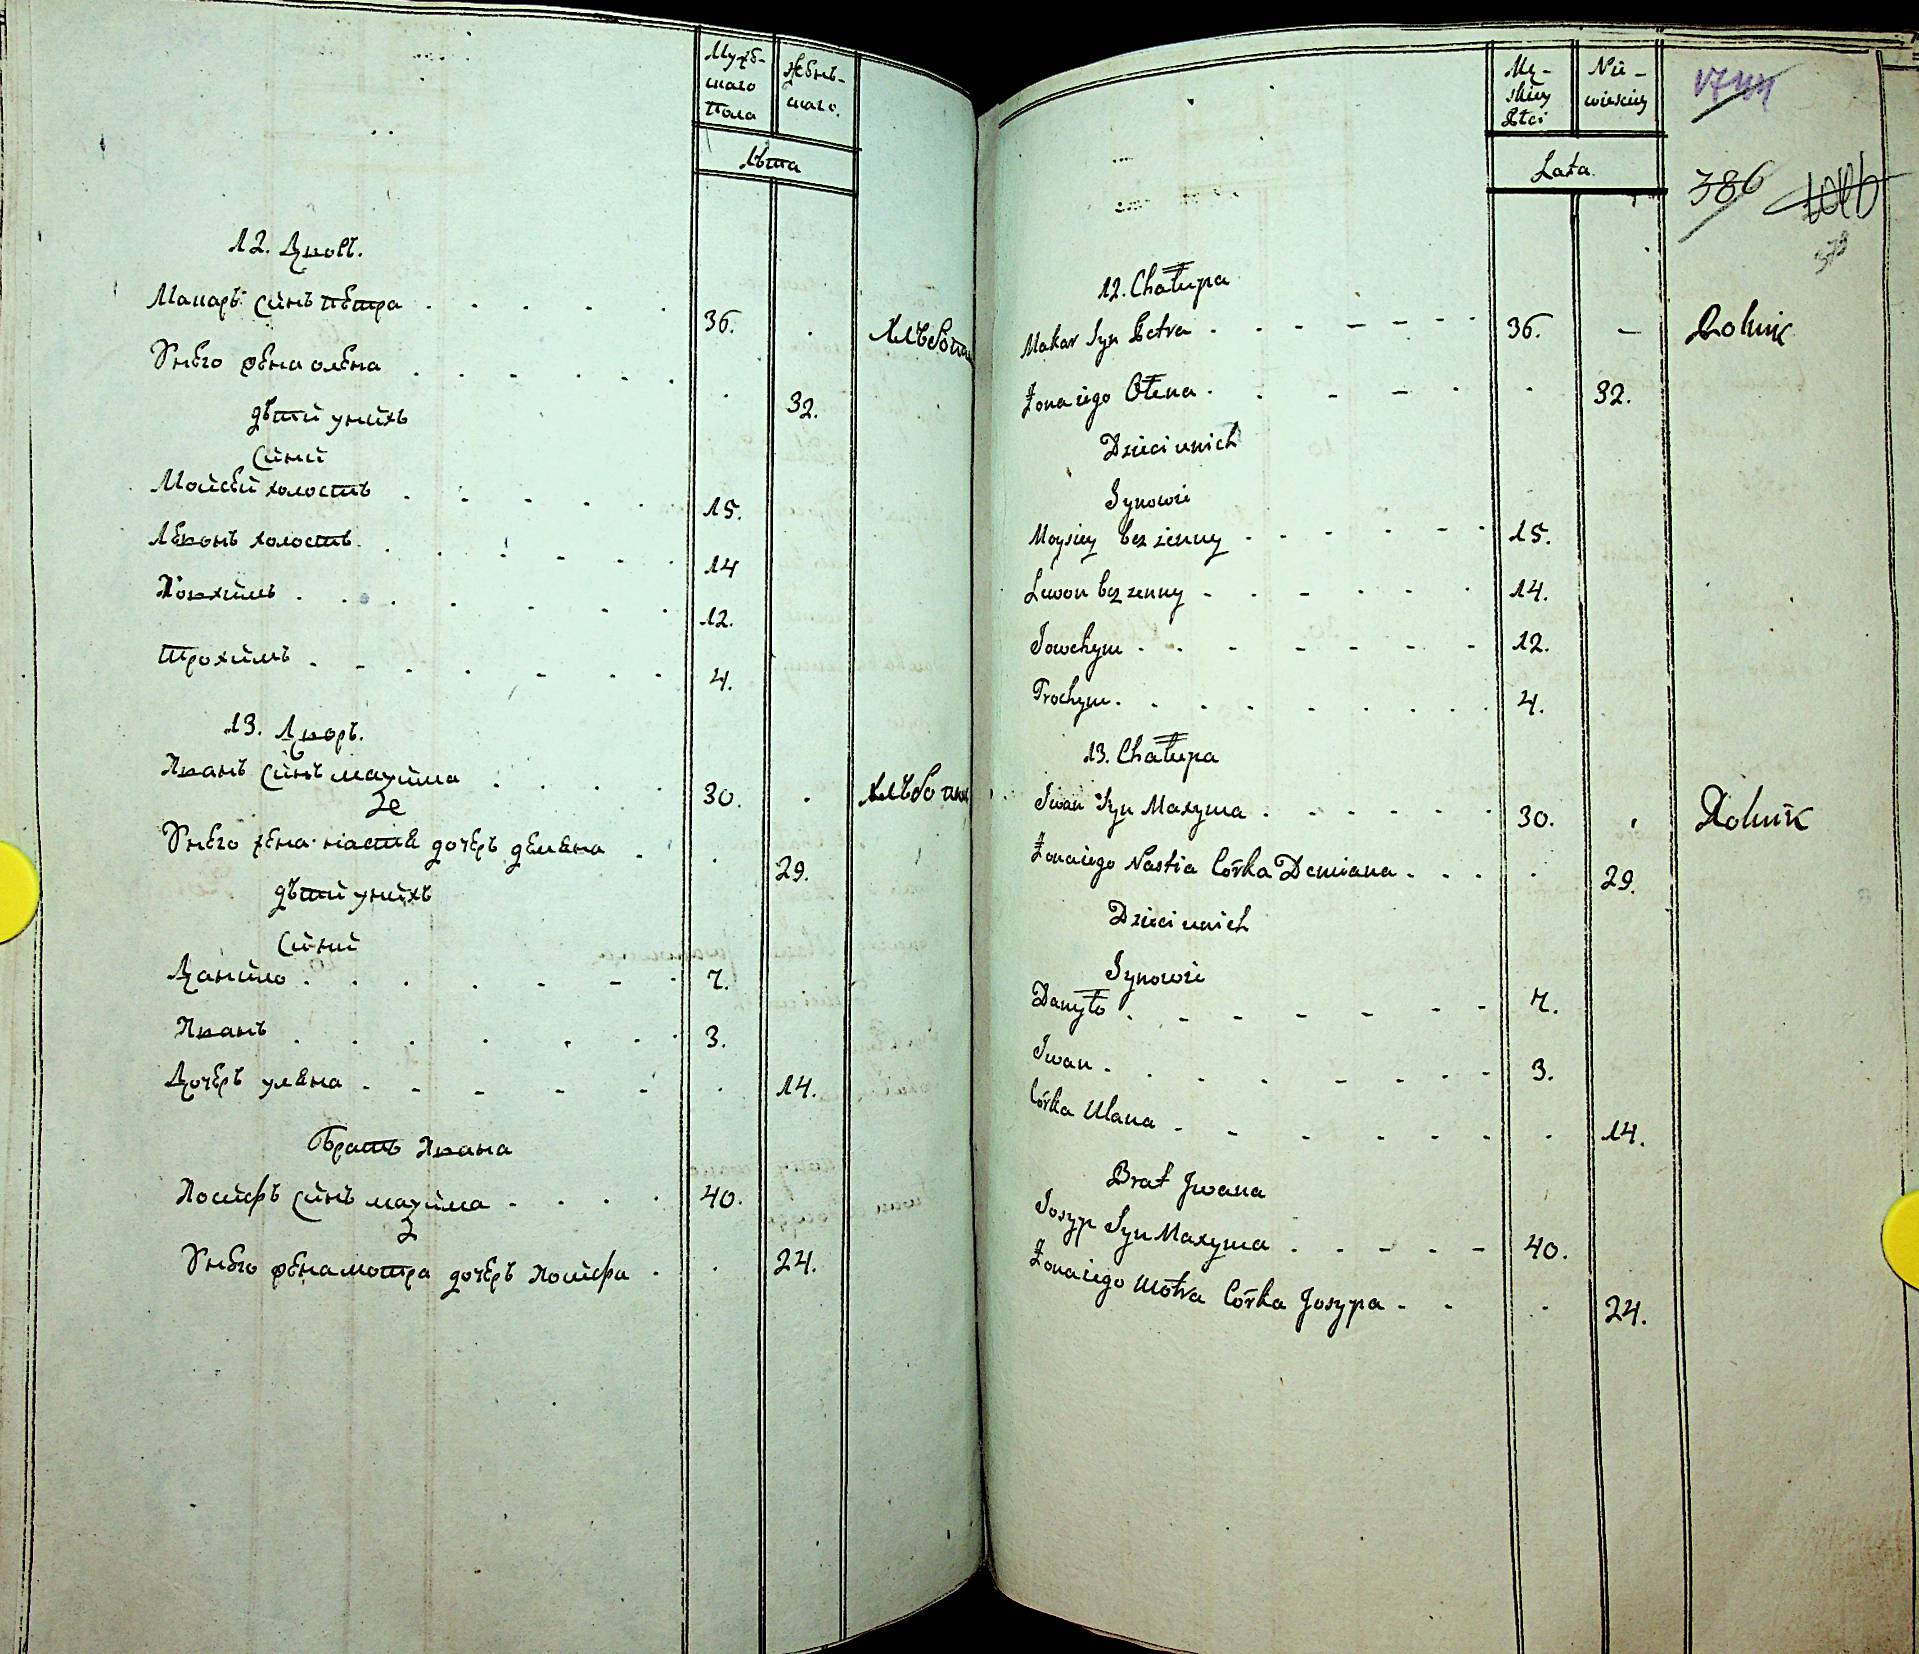 Мужб-
скаго
Пола
Женъ-
скаго.
Лѣта
12. Дворъ.
Макаръ синъ петра 36. Хлѣборо
Унего жена олена 32.
дѣтей унихъ
Сини
Мойсей холостъ 15.
Левонъ холостъ 14
Иовхимъ 12.
Трохимъ 4.
13. Дворъ.
Иванъ синъ махима 30. Хлѣбо
Унего жена настя дочерь демяна 29.
дѣтей унихъ
Сини
Данило 7.
Иванъ 3.
Дочерь уляна 14.
Братъ Ивана
Иосифъ синъ махима 40.
Унего жена мотра дочерь Иосифа 24.
Mę-
skiey
Płci
Nie-
wieściey
Lata.
386
379
12. Chałupa
Makar Syn Petra 36. Rolnik
Żona iego Ołena 32.
Dzieci unich
Synowie
Moysiey bez żenny 15.
Lewon bez zenny 14.
Iowchym 12.
Trochym 4.
13. Chałupa
Iwan Syn Maxyma 30. Rolnik
Żona iego Nastia Córka Demiana 29.
Dzieci unich
Synowie
Danyło 7.
Iwan 3.
Córka Ulana 14.
Brat Jwana
Iosyp Syn Maxyma 40.
Żona iego Motra Córka Josypa 24.